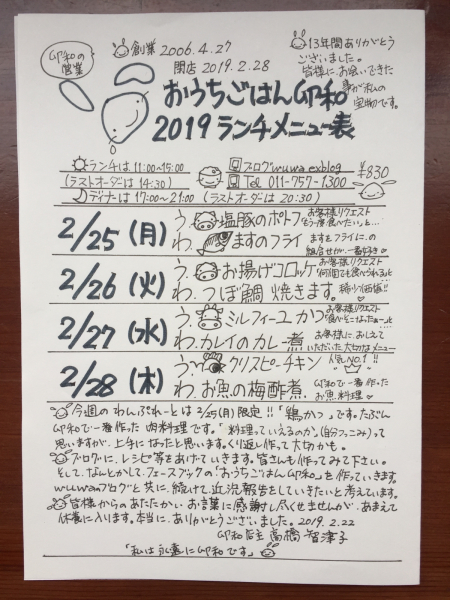 創業 2006.4.27
閉店 2019.2.28
卯和の
営業
13年間ありがとう
ございました。
皆様に、お会いできた
事が私の
宝物です。
おうちごはん卯和
2019ランチメニュー表
ランチは 11:00~15:00
(ラストオーダーは 14:30)
ブログwuwa exblog
Tel 011-757-1300
¥830
ディナーは 17:00~21:00 (ラストオーダーは 20:30)
2/25 (月)
う. 塩豚のポトフ
お客様リクエスト
もう一度食べたい」と…
わ. ますのフライ
ますをフライに、の
組合せが、一番好き
2/26 (火)
う. お揚げコロッケ
お客様リクエスト
わ. つぼ鯛 焼きます。
2/27 (水)
う. ミルフィーユ かつ
お客様リクエスト
わ. カレイのカレー煮
お客様に、おしえて
いただいた大切なメニュー
2/28 (木)
う. クリスピーチキン
人気NO.1!!
わ. お魚の梅酢煮
卯和で一番作った
お魚料理
今週の わんぷれーとは 2/25(月)限定!!「鶏かつ」です。たぶん
卯和で一番作った 肉料理です。「料理っていえるのか」(自分つっこみ)って
思いますが、上手になったと思います。くり返し作って大切かも。
ブログに、レシピ等をあげていきます。皆さんも作ってみて下さい。
そして、なんとかして、フェースブックの「おうちごはん卯和」を作っていきます。
wuwaのブログと共に、続けて、近況報告をしていきたいと考えています。
皆様からのあたたかい お言葉に感謝し尽くせませんが、あまえて
休養に入ります。本当に、ありがとうございました。2019.2.22
卯和店主 高橋 智津子
「私は永遠に卯和です。」